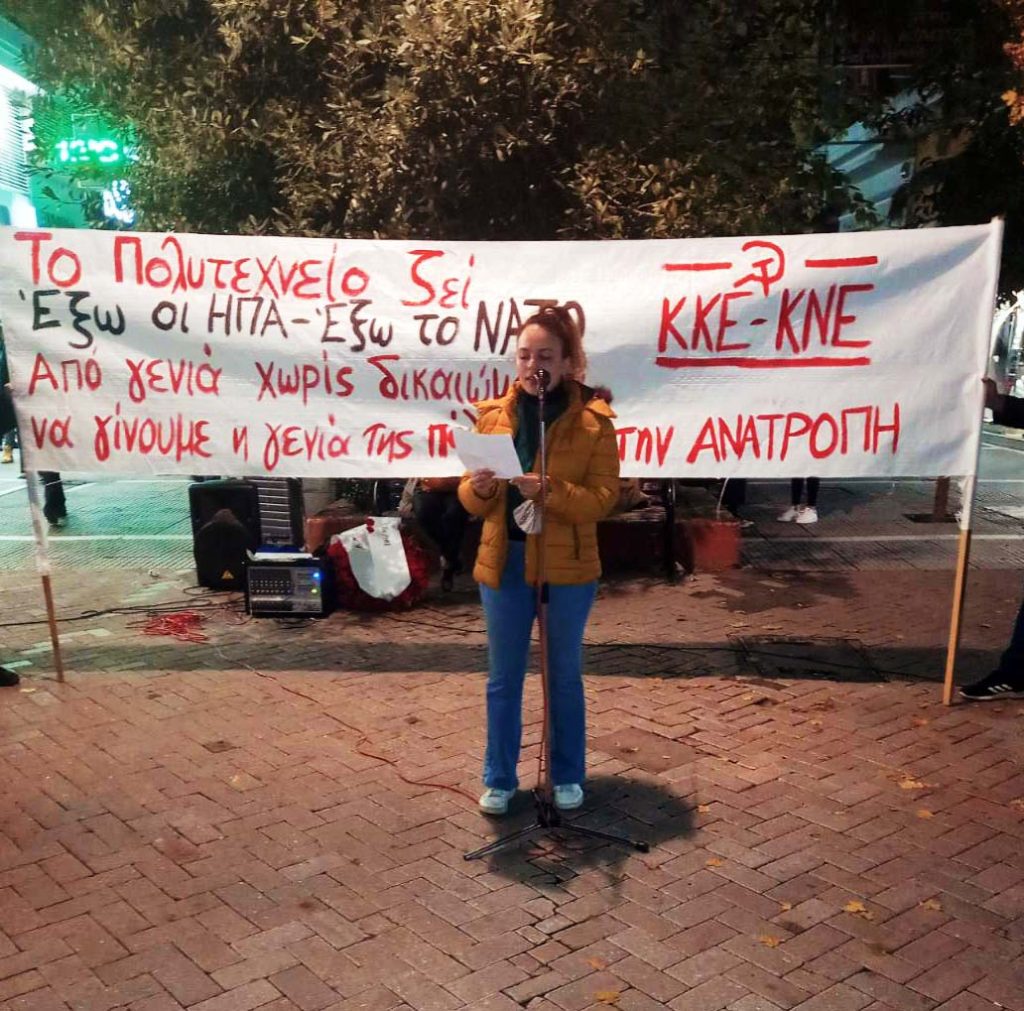 Το Πολυτεχνείο ζεί
Έξω οι ΗΠΑ-Έξω το ΝΑΤΟ
Από γενιά χωρίς δικαιώμ
να γίνουμε η γενιά της
την ΑΝΑΤΡΟΠΗ
ΚΚΕ-ΚΝΕ